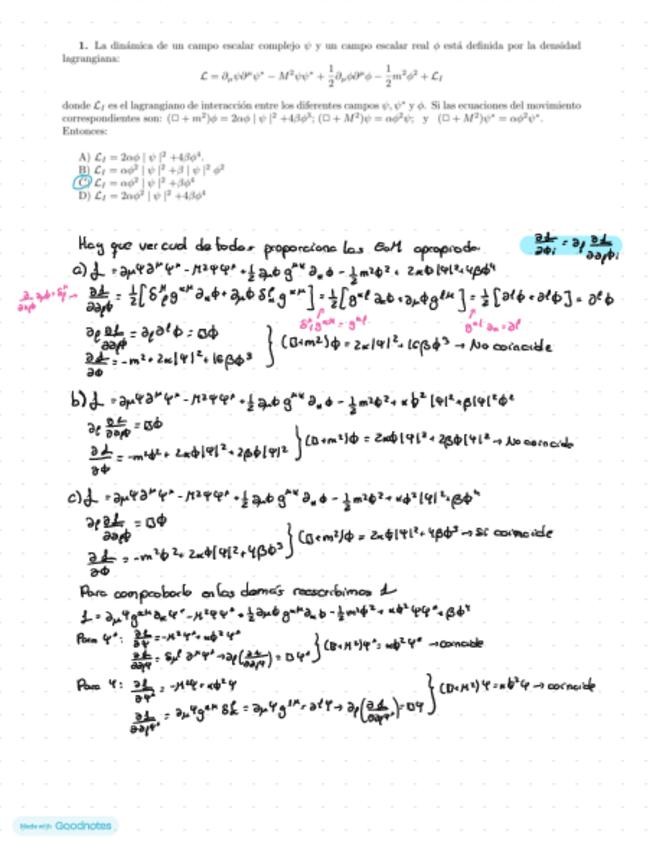 1. La dinámica de un campo escalar complejo ψ y un campo escalar real ϕ está definida por la densidad
lagrangiana:
ℒ = ∂_μψ∂^μψ* − M²ψψ* + 1/2 ∂_μϕ∂^μϕ − 1/2 m²ϕ² + ℒ_I
donde ℒ_I es el lagrangiano de interacción entre los diferentes campos ψ, ψ* y ϕ. Si las ecuaciones del movimiento
correspondientes son: (□ + m²)ϕ = 2αϕ | ψ |² +4βϕ³; (□ + M²)ψ = αϕ²ψ; y (□ + M²)ψ* = αϕ²ψ*.
Entonces:
A) ℒ_I = 2αϕ | ψ |² +4βϕ⁴.
B) ℒ_I = αϕ² | ψ |² +β | ψ |² ϕ²
C) ℒ_I = αϕ² | ψ |² +βϕ⁴
D) ℒ_I = 2αϕ² | ψ |² +4βϕ⁴
Hay que ver cual de todas proporciona las EoM apropiada.
∂ℒ/∂ϕi = ∂ρ ∂ℒ/∂∂ρϕi
a) ℒ = ∂μψ∂^μψ* - M²ψψ* + 1/2 ∂μϕ g^μα ∂αϕ - 1/2 m²ϕ² + 2αϕ|ψ|² + 4βϕ⁴
∂ρ ∂ℒ/∂∂ρϕ = ∂ρ∂^ρϕ = □ϕ
∂ℒ/∂ϕ = -m² + 2α|ψ|² + 16βϕ³
(□+m²)ϕ = 2α|ψ|² + 16βϕ³ → No coincide
b) ℒ = ∂μψ∂^μψ* - M²ψψ* + 1/2 ∂μϕ g^μα ∂αϕ - 1/2 m²ϕ² + αϕ²|ψ|² + β|ψ|²ϕ²
∂ρ ∂ℒ/∂∂ρϕ = □ϕ
∂ℒ/∂ϕ = -m²ϕ + 2αϕ|ψ|² + 2βϕ|ψ|²
(□+m²)ϕ = 2αϕ|ψ|² + 2βϕ|ψ|² → No coincide
c) ℒ = ∂μψ∂^μψ* - M²ψψ* + 1/2 ∂μϕ g^μα ∂αϕ - 1/2 m²ϕ² + αϕ²|ψ|² + βϕ⁴
∂ρ ∂ℒ/∂∂ρϕ = □ϕ
∂ℒ/∂ϕ = -m²ϕ² + 2αϕ|ψ|² + 4βϕ³
(□+m²)ϕ = 2αϕ|ψ|² + 4βϕ³ → Si coincide
Para comprobarlo en las demás reescribimos ℒ
ℒ = ∂μψ g^αμ ∂αψ* - M²ψψ* + 1/2 ∂μϕ g^αμ ∂αϕ - 1/2 m²ϕ² + αϕ²ψψ* + βϕ⁴
Para ψ*: ∂ℒ/∂ψ = -M²ψ* + αϕ²ψ*
(□+M²)ψ* = αϕ²ψ* → coincide
Para ψ: ∂ℒ/∂ψ* = -M²ψ + αϕ²ψ
(□+M²)ψ = αϕ²ψ → coincide
Made with Goodnotes